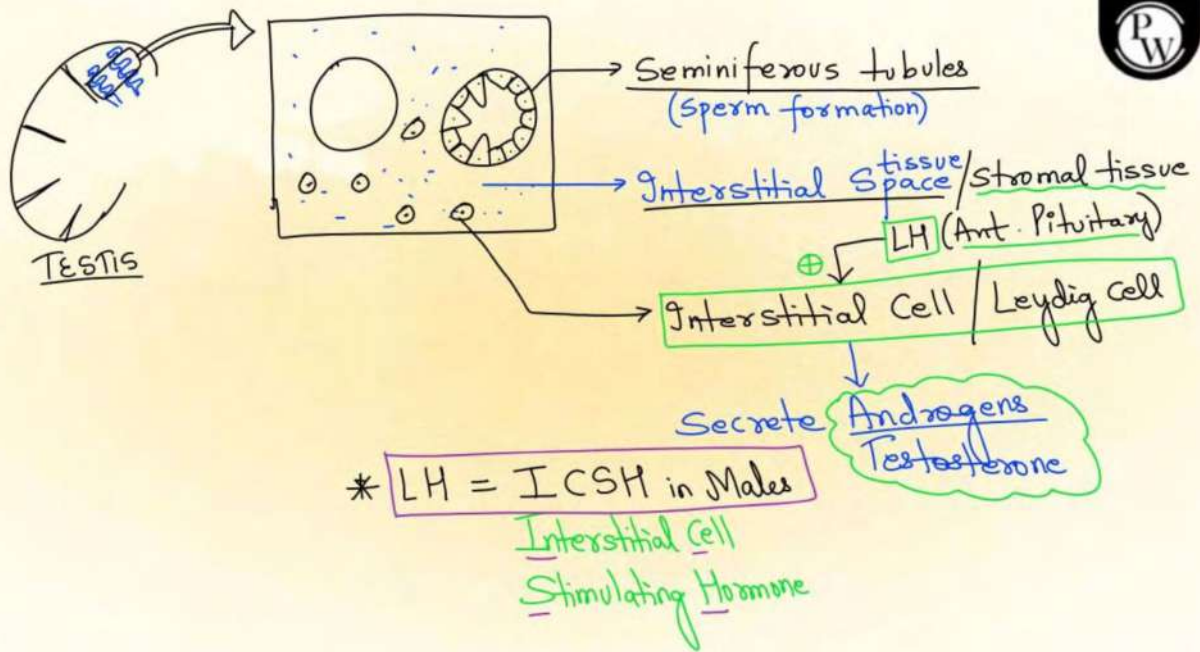 PW
Seminiferous tubules
(sperm formation)
Interstitial Space tissue/Stromal tissue
LH (Ant. Pituitary)
⊕
TESTIS
Interstitial Cell / Leydig cell
Secrete Androgens
Testosterone
* LH = ICSH in Males
Interstitial Cell
Stimulating Hormone